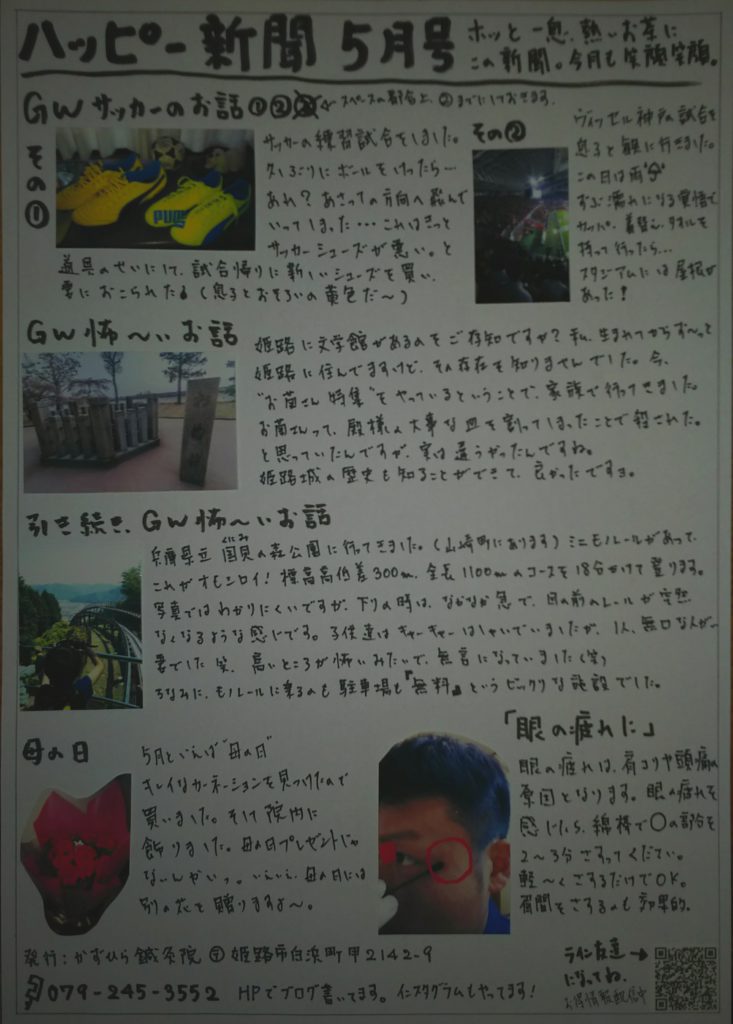 ハッピー新聞 5月号
ホッと一息、熱いお茶に
この新聞。今月も笑顔笑顔。
GWサッカーのお話①②③
スペースの都合上、②までにしておきます。
その①
PUMA
サッカーの練習試合をしました。
久しぶりにボールをけったら…
あれ?あさっての方向へ飛んで
いってしまった…これはきっと
サッカーシューズが悪い。と
道具のせいにして、試合帰りに新しいシューズを買い、
妻におこられたよ(息子とおそろいの黄色だ〜)
その②
ヴィッセル神戸の試合を
息子と観に行きました。
この日は雨
ずぶ濡れになる覚悟で、
カッパ、着替え、タオルを
持って行ったら…
スタジアムには屋根が
あった!
GW怖〜いお話
姫路に文学館があるのをご存知ですか?私、生まれてからず〜っと
姫路に住んでますけど、その存在を知りませんでした。今、
"お菊さん特集"をやっているということで、家族で行ってきました。
お菊さんって、殿様の大事な皿を割ってしまったことで殺された。
と思っていたんですが、実は違うかったんですね。
姫路城の歴史も知ることができて、良かったですヨ。
引き続き、GW怖〜いお話
兵庫県立 国見の森公園に行ってきました。(山崎町にあります)ミニモノレールがあって、
くにみ
これがオモシロイ!標高高低差300m、全長1100mのコースを18分かけて登ります。
写真ではわかりにくいですが、下りの時は、なかなか急で、目の前のレールが突然
なくなるような感じです。子供達はキャーキャーはしゃいでいましたが、1人、無口な人が…
妻でした笑。高いところが怖いみたいで、無言になっていました(笑)
ちなみに、モノレールに乗るのも駐車場も『無料』というビックリな施設でした。
母の日
5月といえば"母の日"
キレイなカーネーションを見つけたので
買いました。そして院内に
飾りました。母の日プレゼントじゃ
ないんかいっ。いえいえ、母の日には
別の花を贈りますよ〜。
「眼の疲れに」
眼の疲れは、肩コリや頭痛の
原因となります。眼の疲れを
感じたら、綿棒で○の部分を
2〜3分さすってください。
軽〜くさするだけでOK。
眉間をさするのも効果的。
発行:かずひら鍼灸院 〒 姫路市白浜町甲2142-9
079-245-3552 HPでブログ書いてます。インスタグラムもやってます!
ライン友達→
になってね。
お得情報配信中